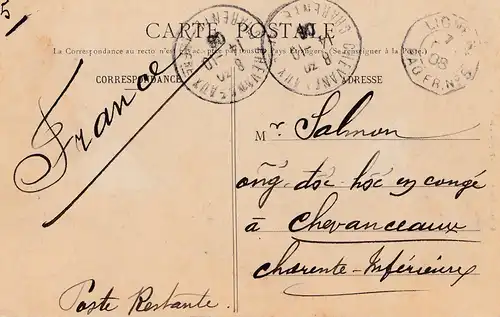 5
CARTE POSTALE
La Correspondance au recto n'est pas acceptée par tous les Pays étrangers. (Se renseigner à la Poste.)
CORRESPONDANCE
ADRESSE
France
Mr. Salmon
ông-đốc-học en congé
à Chevanceaux
Charente-Inférieure
Poste Restante.
CHEVANCEAUX
CHARENTE
CHEVANCEAUX
CHARENTE
LIGNE
08